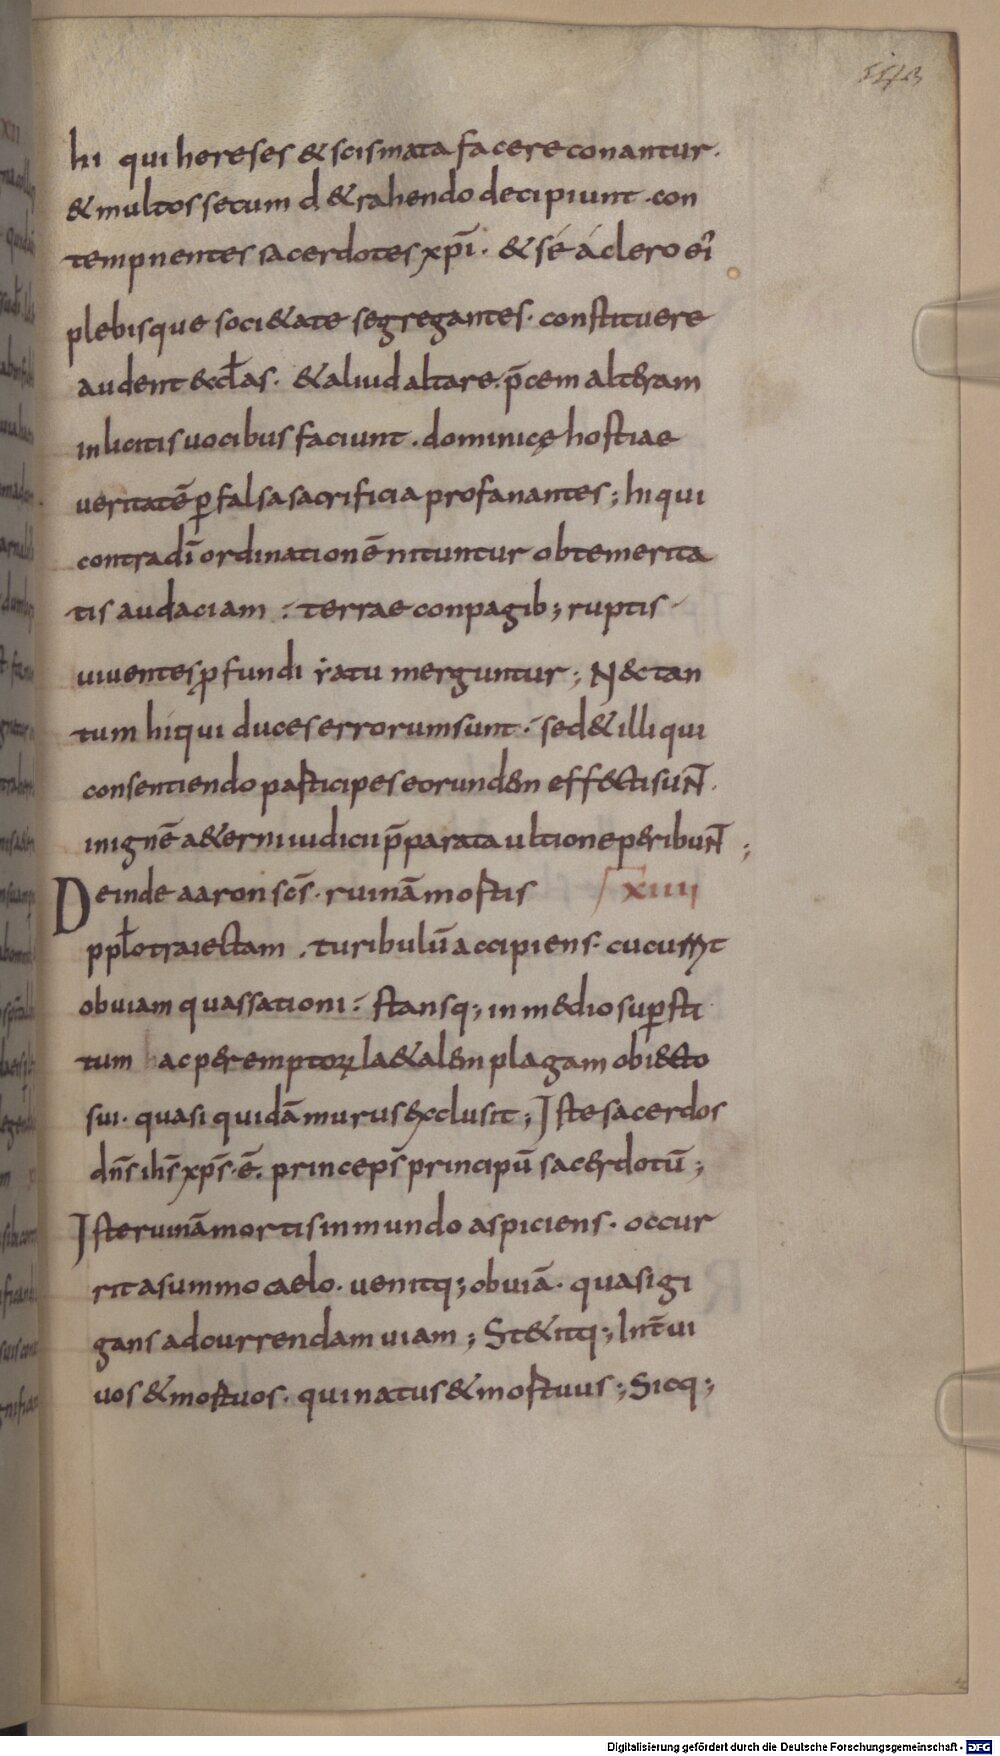 173
hi qui hereses & scismata facere conantur.
& multos secum d&rahendo decipiunt. con
tempnentes sacerdotes xp̄i. & sé á clero ei᷒
plebisque soci&ate segregantes. constituere
audent &cl̄as. & aliud altare. p̄cem alteram
inlicitis uocibus faciunt. dominicę hostiae
veritatē ꝑ falsa sacrificia profanantes; hi qui
contra dī ordinationē nituntur ob temerita
tis audaciam: terrae conpagib; ruptis
viventes ꝓfundi iratu merguntur; N&c tan
tum hi qui duces errorum sunt. sed & illi qui
consentiendo participes eorundem effecti suN̄.
in ignē a&erni iudicii p̄parata ultione peribuN̄;
Deinde aaron scs̄. ruinā mortis XIIII
ppl̄o traiectam. turibulū accipiens. cucurrit
obuiam quassationi: stansq; in medio suꝑsti
tum ac peremptoꝝ la&alem plagam obiecto
sui. quasi quidā murus exclusit; Iste sacerdos
dn̄s ihs̄ xps̄. ē. princeps principū sacerdotū;
Iste ruinā mortis in mundo aspiciens. occur
rit a summo caelo. uenitq; obuiā. quasi gi
gans ad currendam uiam; St&itq; Int̄ ui
uos & mortuos. qui natus & mortuus; Sicq;
Digitalisierung gefördert durch die Deutsche Forschungsgemeinschaft - DFG